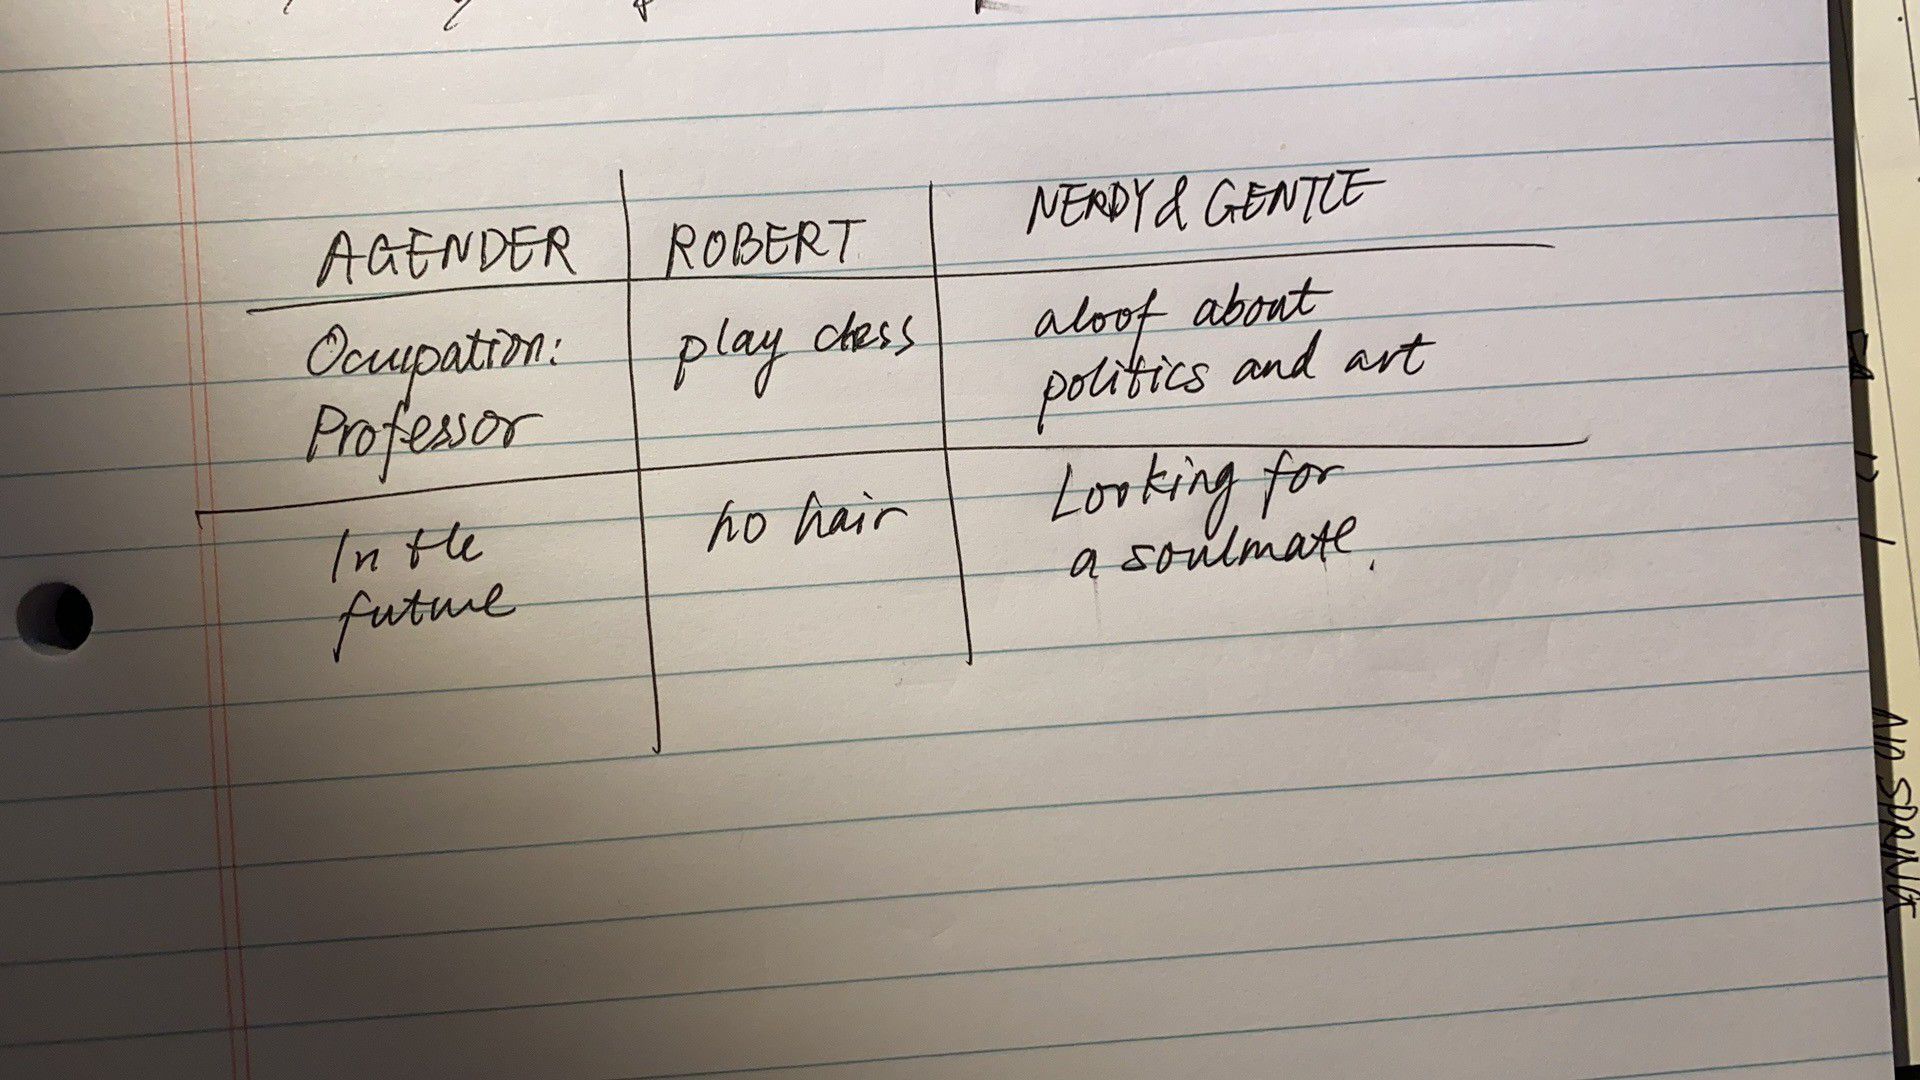 AGENDER
ROBERT
NERDY & GENTLE
Ocupation:
Professor
play chess
aloof about
politics and art
In the
future
no hair
Looking for
a soulmate.